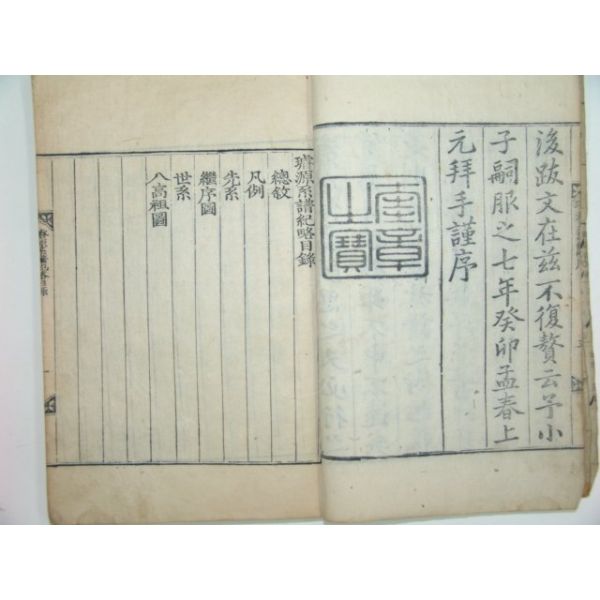 後跋文在茲不復贅云予小
子嗣服之七年癸卯孟春上
元拜手謹序
奎章
之寶
璿源系譜紀略目錄
總敘
凡例
先系
繼序圖
世系
八高祖圖